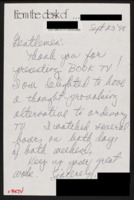 From the desk of...
Sept 23 '98
Gentlemen:
Thank you for
presenting Book TV!
I am delighted to have
a thought-provoking
alternative to ordinary
TV. I watched several
hours on both days
of both weekends.
Keep up your great
work! Sincerely,